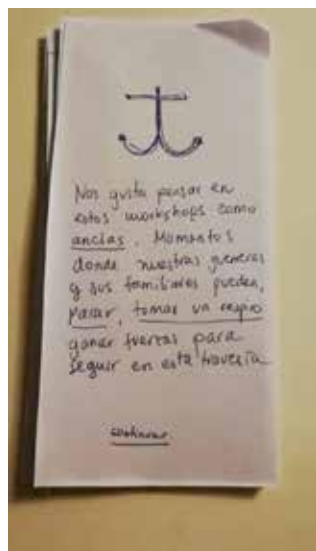 Nos gusta pensar en
estos workshops como
anclas. Momentos
donde nuestras
y sus familiares pueden,
parar, tomar un respiro
ganar fuerzas para
seguir en esta travesía
continuar